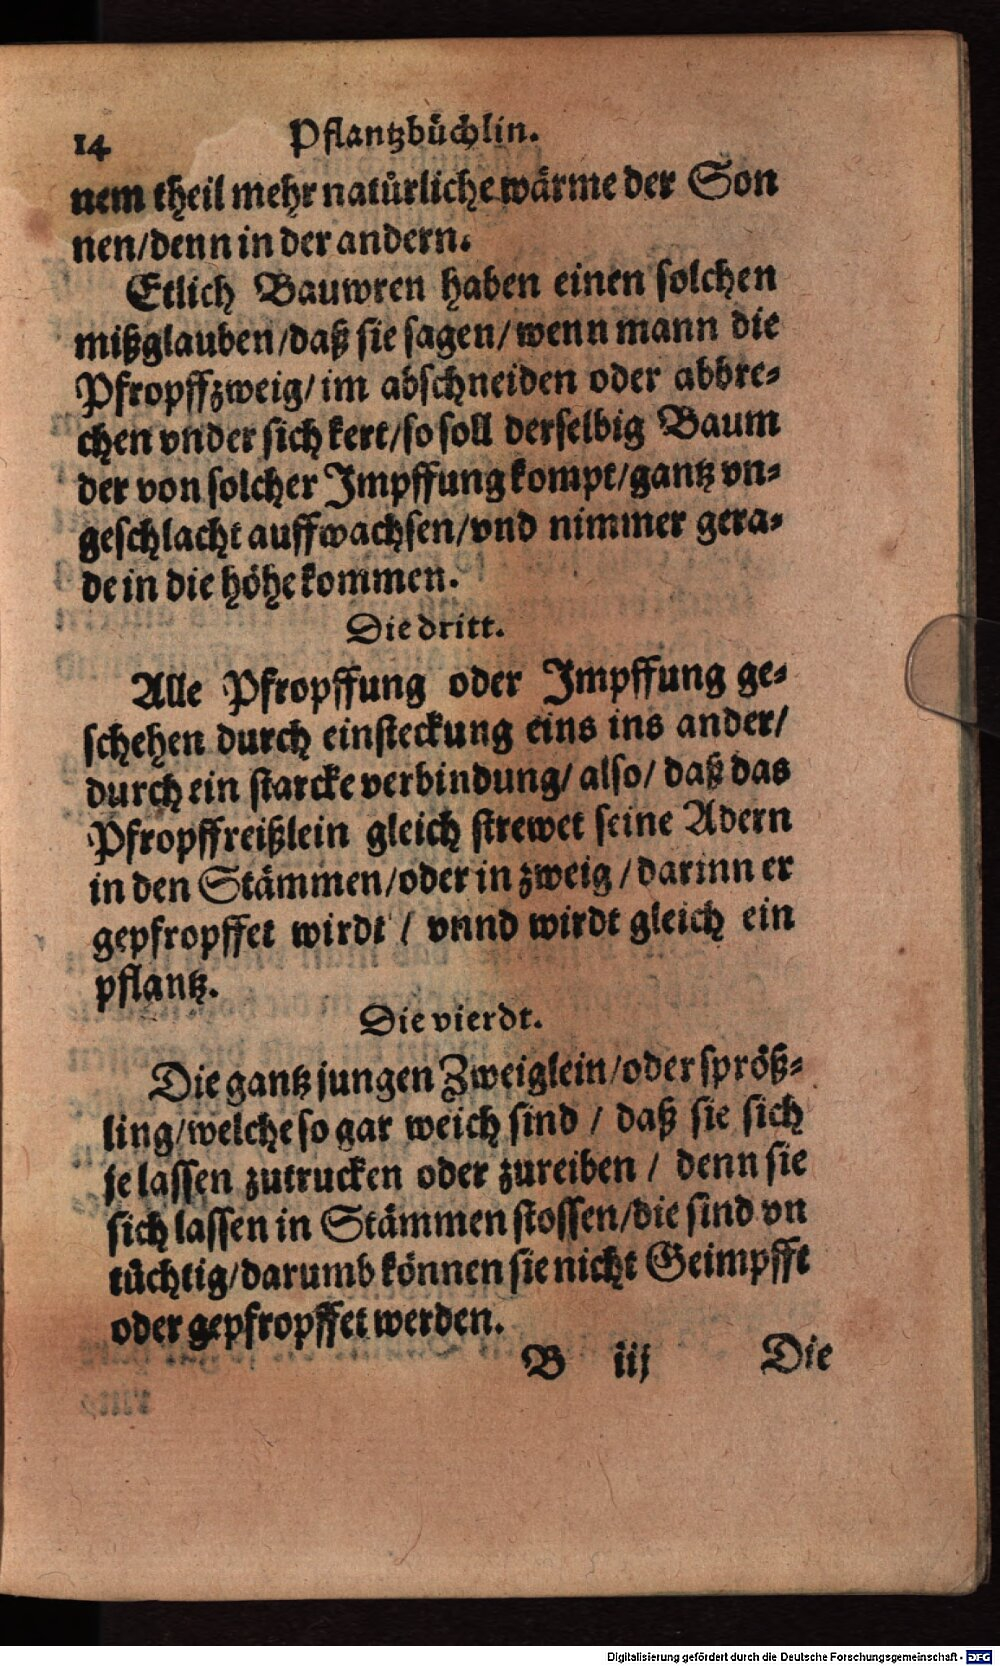 14 Pflantzbüchlin.
nem theil mehr natürliche wärme der Son
nen/denn in der andern.
Etlich Bauwren haben einen solchen
mißglauben/daß sie sagen/wenn mann die
Pfropffzweig/im abschneiden oder abbre-
chen vnder sich kert/so soll derselbig Baum
der von solcher Impffung kompt/gantz vn-
geschlacht auffwachsen/vnd nimmer gera-
de in die höhe kommen.
Die dritt.
Alle Pfropffung oder Impffung ge-
schehen durch einsteckung eins ins ander/
durch ein starcke verbindung/also/daß das
Pfropffreißlein gleich strewet seine Adern
in den Stämmen/oder in zweig/darinn er
gepfropffet wirdt/vnnd wirdt gleich ein
pflantz.
Die vierdt.
Die gantz jungen Zweiglein/oder spröß-
ling/welche so gar weich sind/daß sie sich
je lassen zutrucken oder zureiben/denn sie
sich lassen in Stämmen stossen/die sind vn
tüchtig/darumb können sie nicht Geimpfft
oder gepfropffet werden.
B iij Die
Digitalisierung gefördert durch die Deutsche Forschungsgemeinschaft - DFG